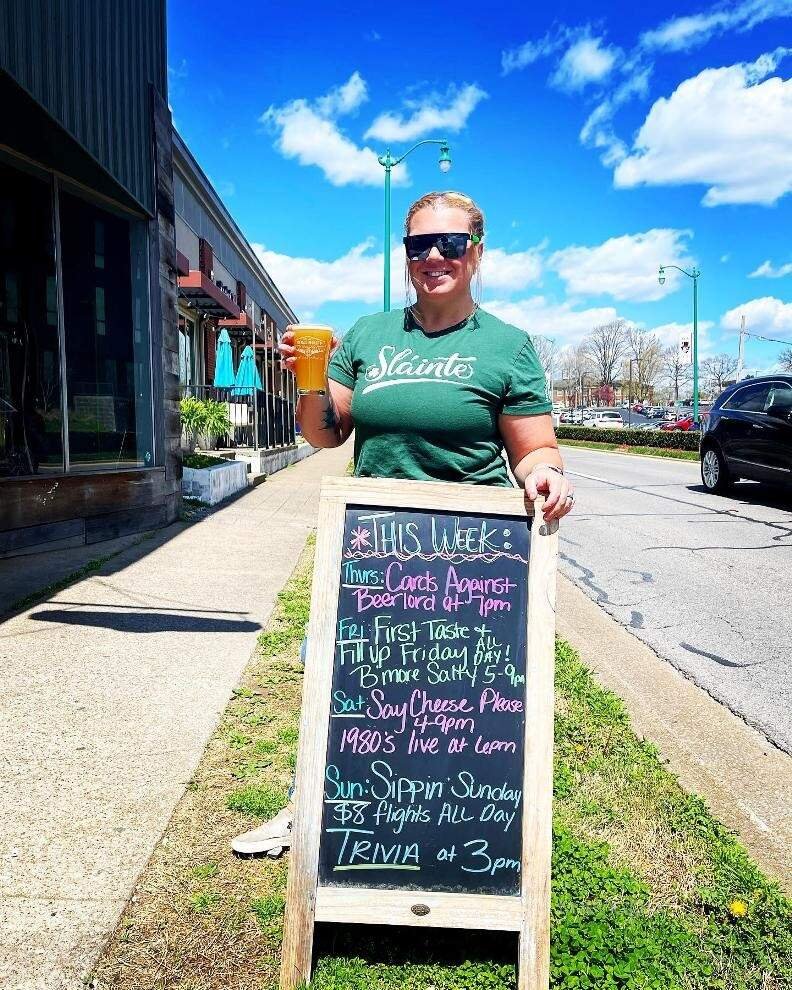 Sláinte
*THIS WEEK:
Thurs: Cards Against
Beerlord at 7pm
Fri: First Taste +
Fill up Friday ALL DAY!
B more Salty 5-9pm
Sat: Say Cheese Please
4-9pm
1980's live at 6pm
Sun: Sippin' Sunday
$8 flights ALL Day
TRIVIA at 3pm